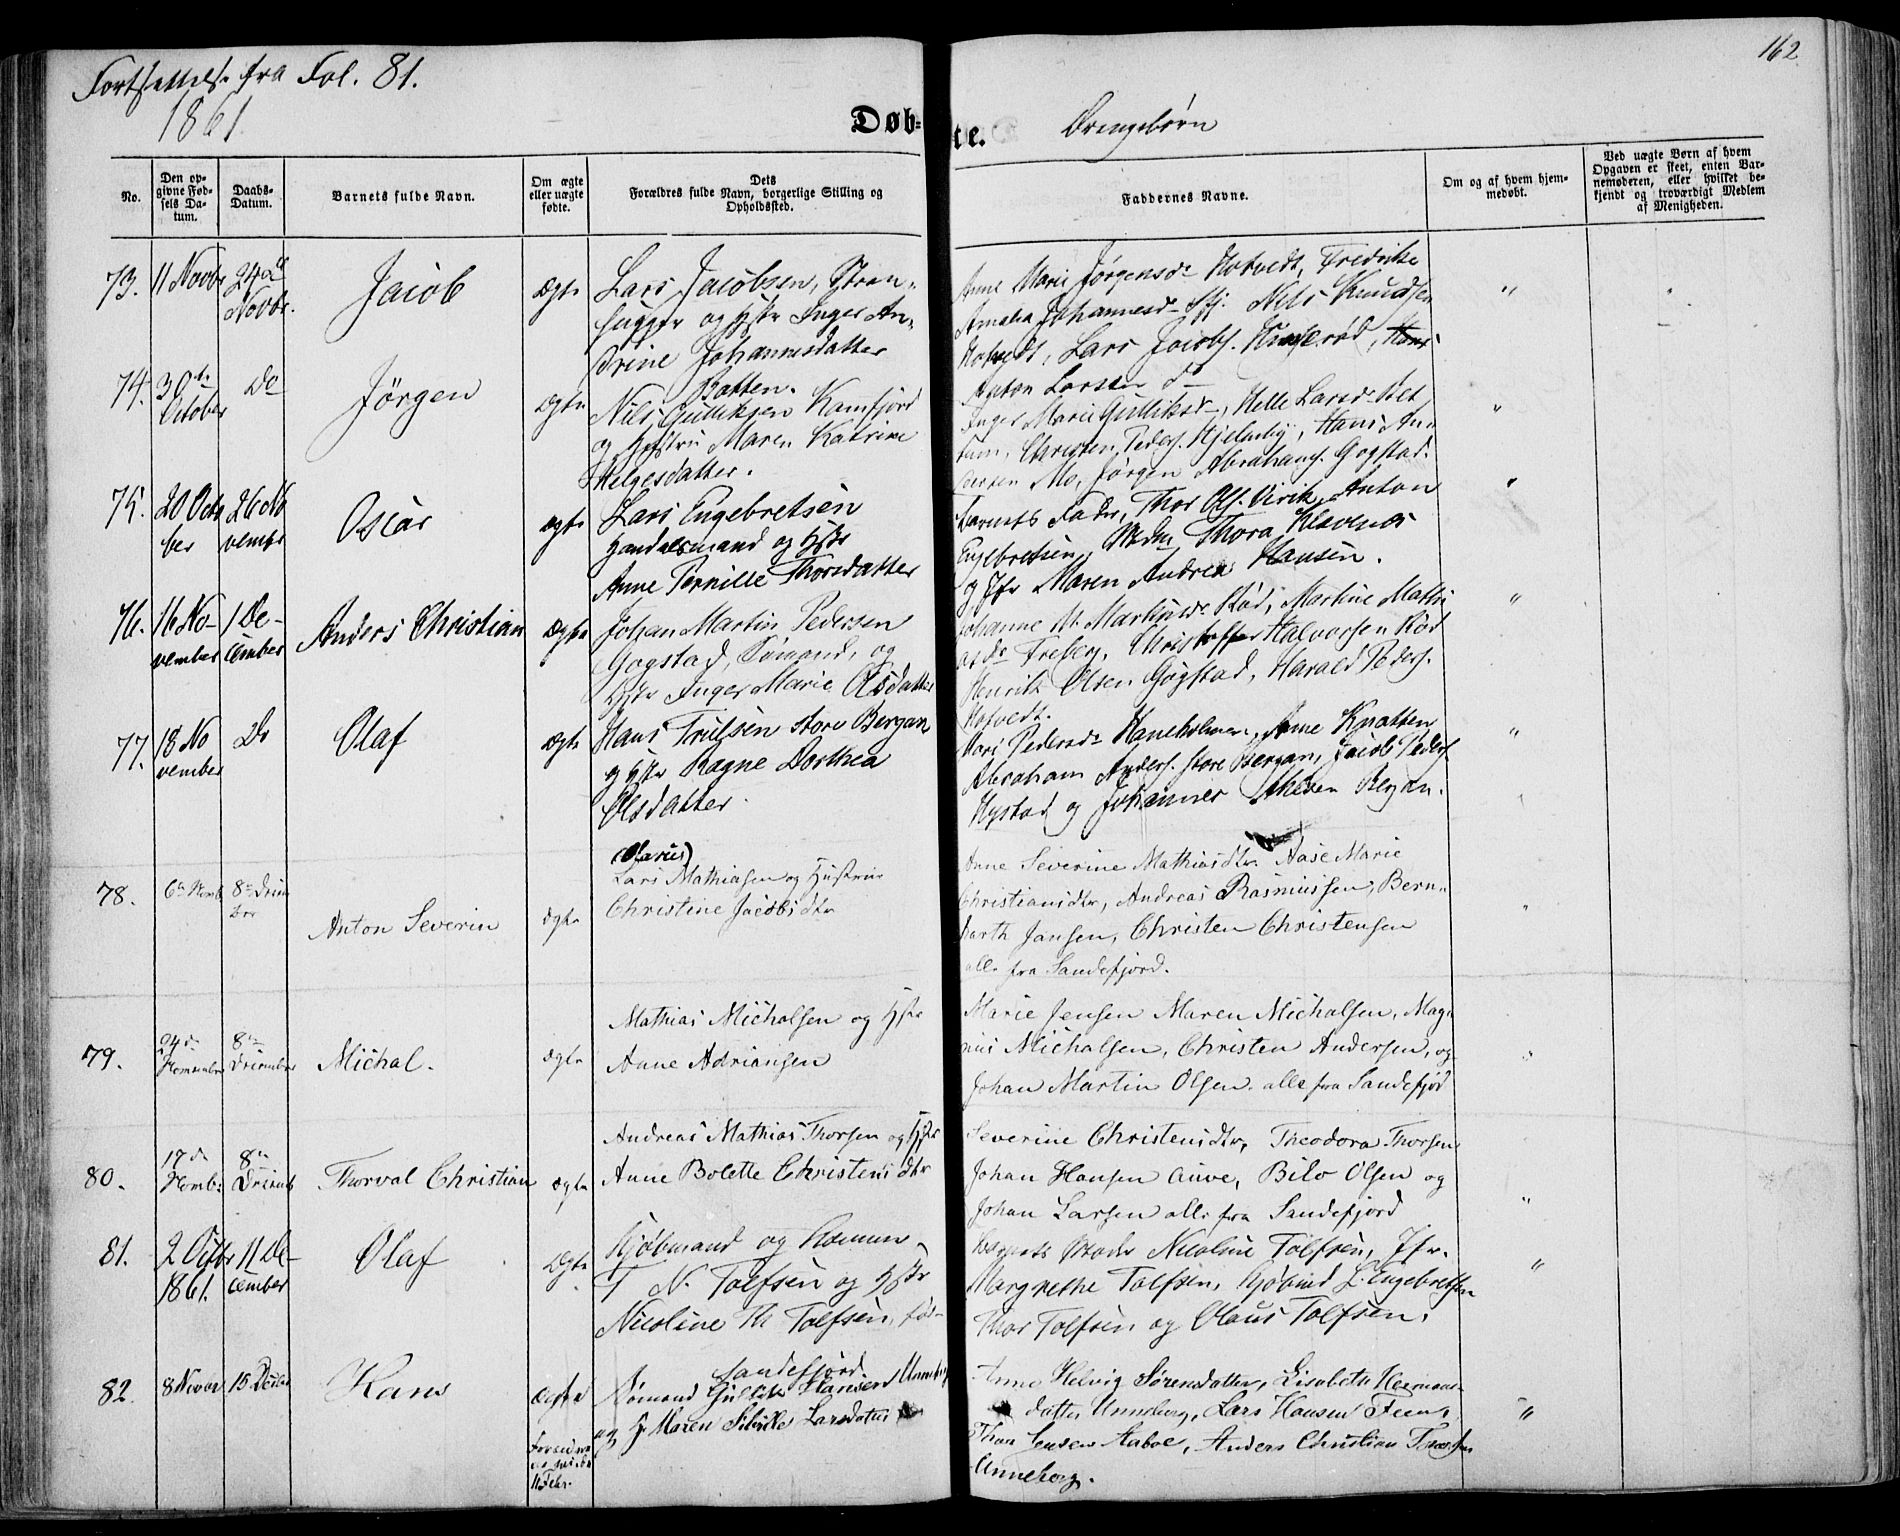 Fortsættelse fra Fol. 81.
1861
162
Døb-te.
Drengebørn
No.
Den opgivne Fødsels Datum.
Daabs-Datum.
Barnets fulde Navn.
Om ægte eller uægte fødte.
Dets Forældres fulde Navn, borgerlige Stilling og Opholdssted.
Faddernes Navne.
Om og af hvem hjemmedøbt.
Ved uægte Børn af hvem Opgaven er skeet, enten Barnemoderen, eller hvilket bekjendt og troværdigt Medlem af Menigheden.
73. 11 Novbr 24de Novbr. Jacob ægte
Lars Jacobsen,
og Hstr Inger An-
drine Johannesdatter
Anne Marie Jørgensdr Hotvedt, Fredrikke
Amalia Johannesdr Nils Knudsen
Hotvedt, Lars Jacobs. Hans
Anton Larsen
74. 30te October Do Jørgen ægte
Nils Gulliksen Kamfjord
og Hustru Maren Katrine
Helgesdatter.
Inger Marie Gulliksdr, Helle Larsdr
Christen Peders. Hjelmby, Hans An-
Mo, Jørgen Abrahams. Gogstad.
75. 20 October 26 November Oscar ægte
Lars Engebretsen
Handelsmand og Hstr
Anne Pernille Thorsdatter
Barnets Fader, Thor Ols. Virik, Anton
Engebretsen, Mdm Thora Klavenæs
og Jfr Maren Andrea Hansen.
76. 16 November 1 December Anders Christian ægte
Johan Martin Pedersen
Gogstad, Sømand, og
Hstr Inger Marie Olsdatter
Johanne M. Markusdr Rød, Martine Mathi-
asdr Freberg, Christoffer Halvorsen Rød
Henrik Olsen Gogstad, Harald Peders.
Hotvedt.
77. 18 November Do Olaf ægte
Hans Trulsen store Bergan
og Hstr Ragne Dorthea
Olsdatter.
Mari Pedersdr Haneholmen, Anne Knatten
Abraham Anders. store Bergan, Jacob Peders.
Nystad og Johannes Bergan.
78. 6te Novemb 8de December Anton Severin ægte
(Olarus)
Lars Mathiasen og Hustrue
Christine Jacobsdtr
Anne Severine Mathiasdtr. Aase Marie
Christiansdtr, Andreas Rasmussen, Bern-
harth Jansen, Christen Christensen
alle fra Sandefjord.
79. 24de November 8de December Michal. ægte
Mathias Micholsen og Hstr
Anne Adriansen
Marie Jensen Maren Micholsen, Mag-
nus Micholsen, Christen Andersen, og
Johan Martin Olsen. alle fra Sandefjord
80. 17de Novemb: 8de Decemb Thorval Christian ægte
Andreas Mathias Thorsen og Hstr
Anne Bolette Christensdtr
Severine Christensdtr, Theodora Thorsen
Johan Hansen Auve, Bilo Olsen og
Johan Larsen alle fra Sandefjord
81. 2 Octbr 1861. 11 December Olaf ægte
Kjøbmand og
T. N. Tolfsen og Hstr
Nicoline Th Tolfsen,
Sandefjord.
Barnets Moder Nicoline Tolfsen, Jfr.
Margrethe Tolfsen, Kjøbmd L. Engebretsen
Thor Tolfsen og Olaus Tolfsen.
82. 8 Novbr 15 Decbr Hans ægte
11 Febr.
Sømand Gullik Hansen Unneberg
og H. Maren Sibille Larsdatter
Anne Helvig Sørensdatter, Lisabeth Hermans-
datter Unneberg, Lars Hansen Feen,
Thor Jensen Aaboe, Anders Christian
Unneberg.